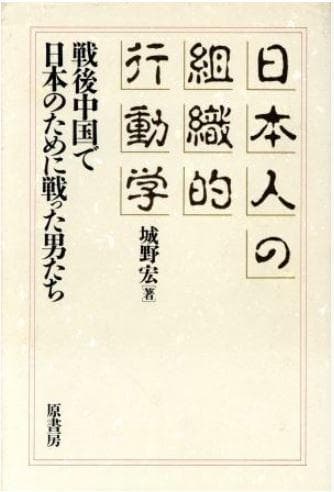 日本人の
組織的
行動学
城野宏[著]
戦後中国で
日本のために戦った男たち
原書房